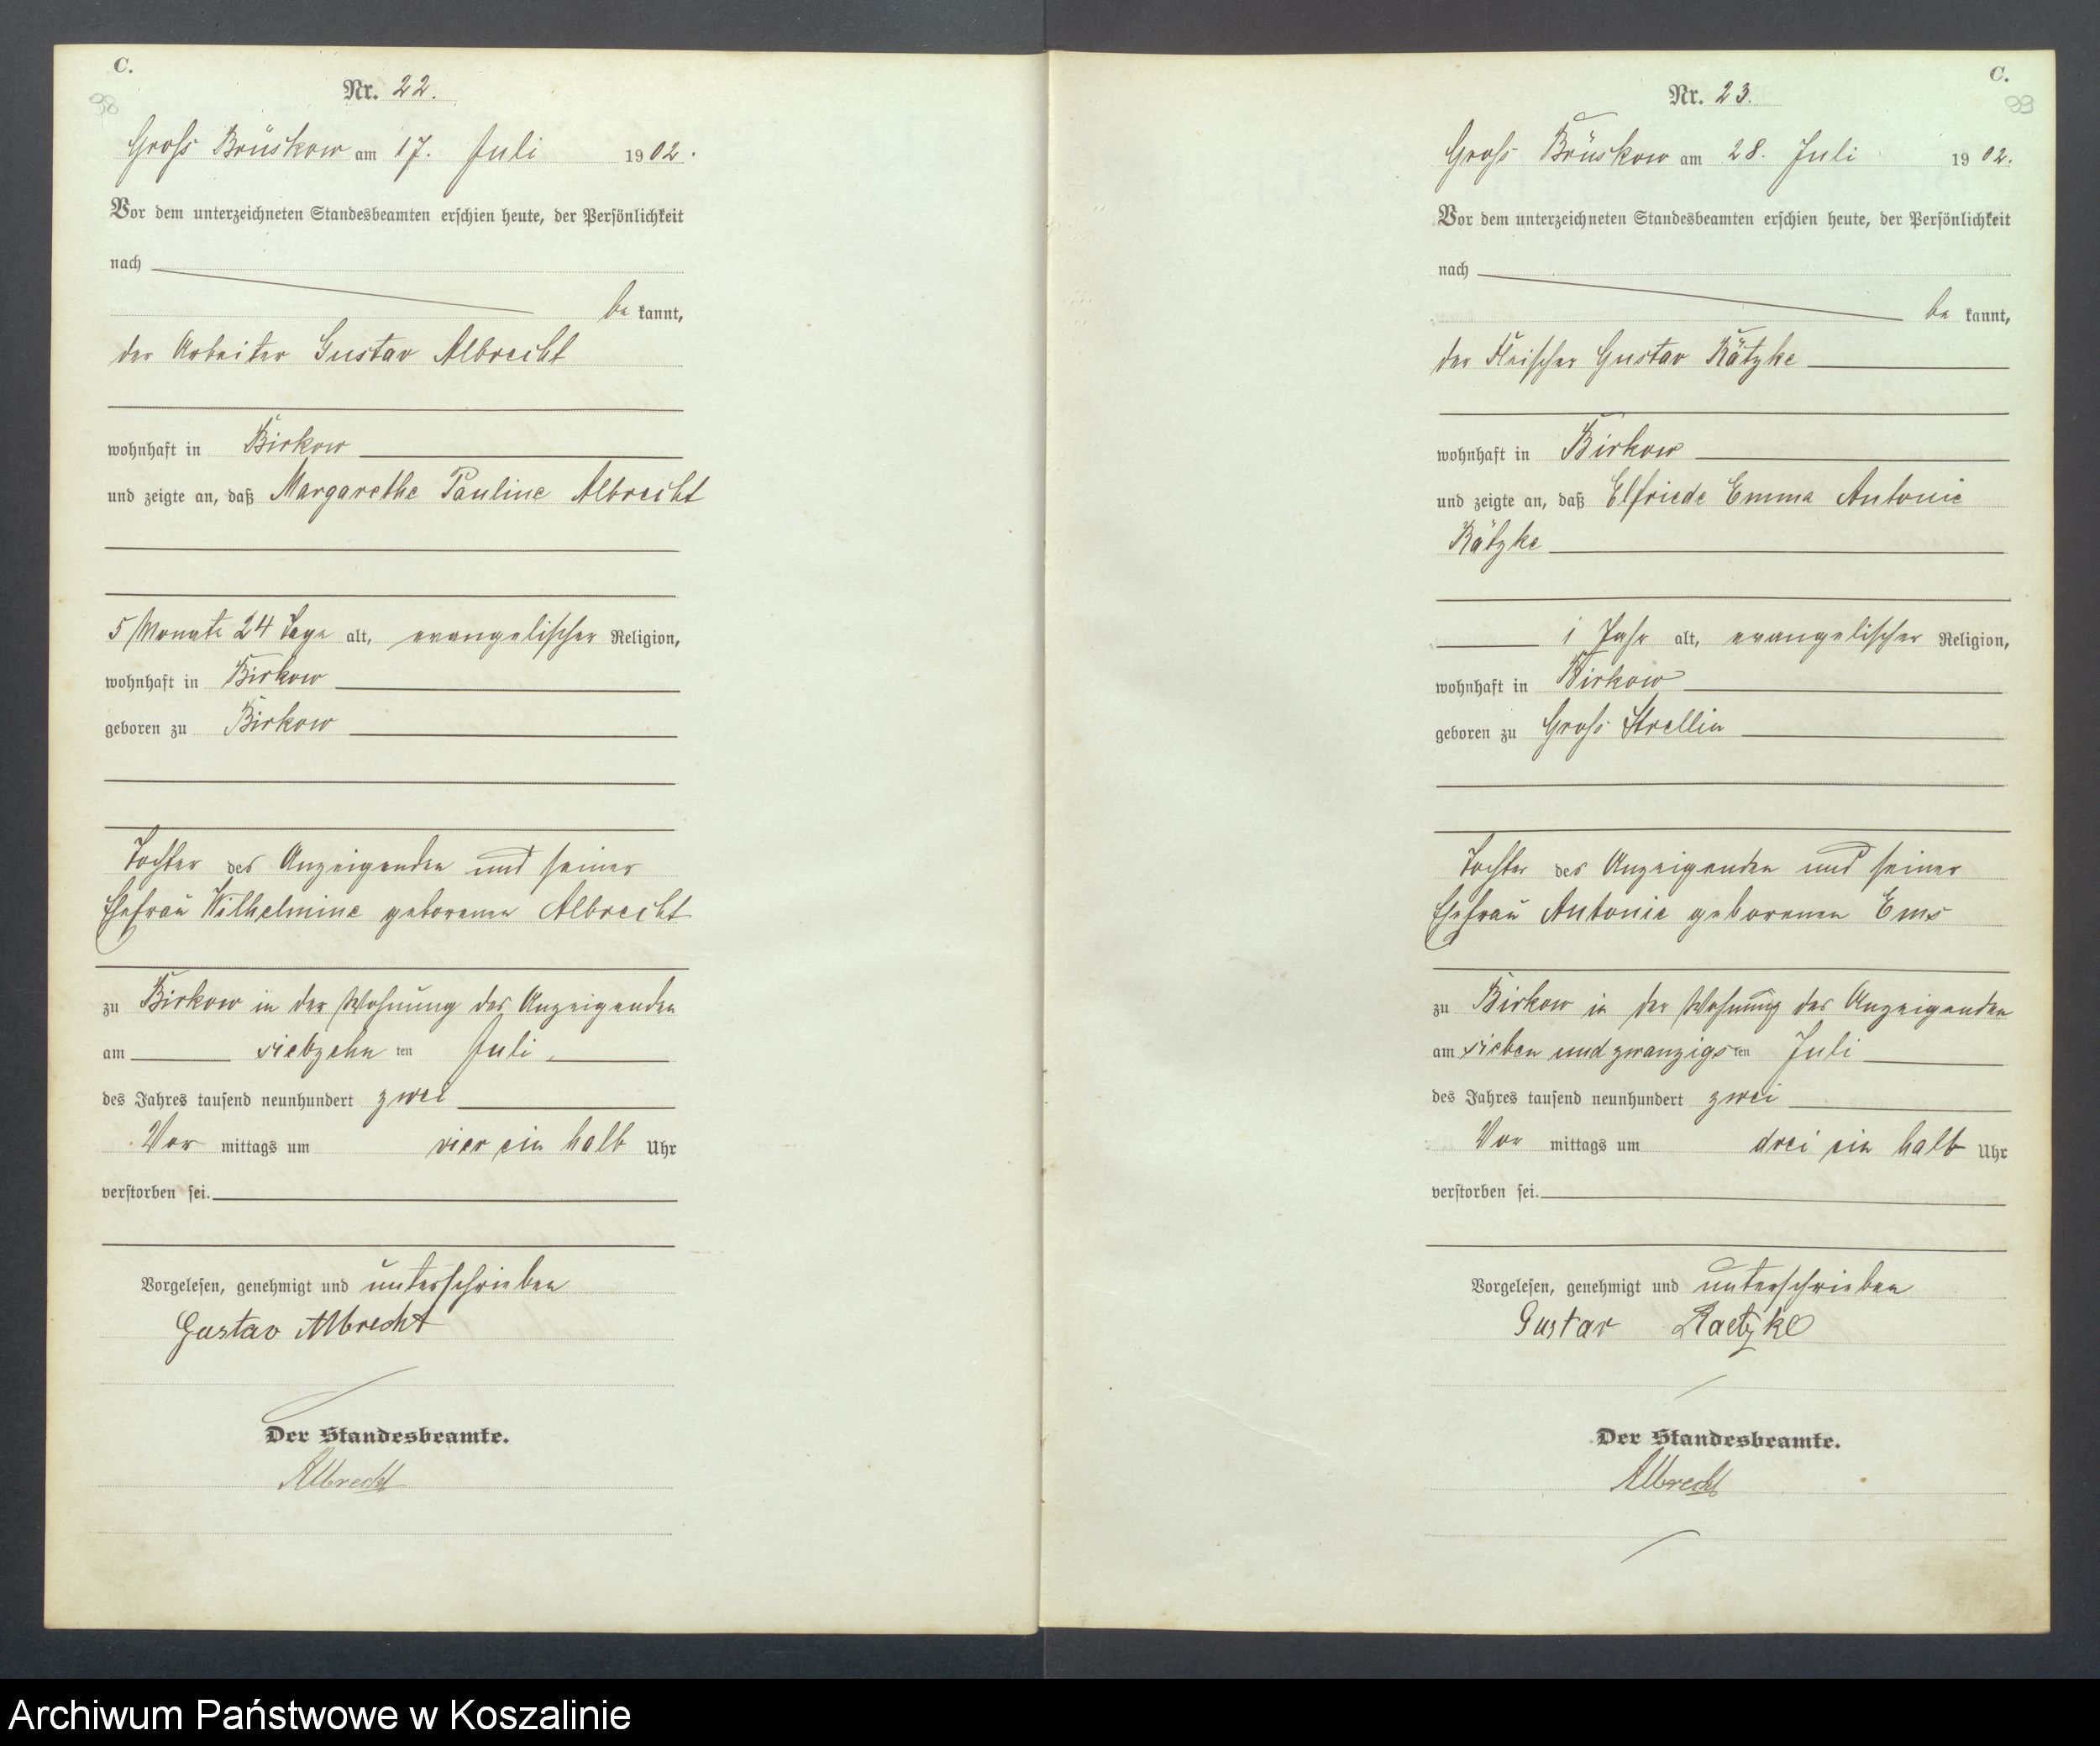 C.
98
Nr. 22.
Groß Brüskow am 17. Juli 1902.
Vor dem unterzeichneten Standesbeamten erschien heute, der Persönlichkeit
nach
be kannt,
der Arbeiter Gustav Albrecht
wohnhaft in Birkow
und zeigte an, daß Margarethe Pauline Albrecht
5 Monate 24 Tage alt, evangelischer Religion,
wohnhaft in Birkow
geboren zu Birkow
Tochter des Anzeigenden und seiner
Ehefrau Wilhelmine geborenen Albrecht
zu Birkow in der Wohnung des Anzeigenden
am siebzehn ten Juli
des Jahres tausend neunhundert zwei
Vor mittags um vier ein halb Uhr
verstorben sei.
Vorgelesen, genehmigt und unterschrieben
Gustav Albrecht
Der Standesbeamte.
Albrecht
C.
99
Nr. 23.
Groß Brüskow am 28. Juli 1902.
Vor dem unterzeichneten Standesbeamten erschien heute, der Persönlichkeit
nach
be kannt,
der Fleischer Gustav Rätzke
wohnhaft in Birkow
und zeigte an, daß Elfriede Emma Antonie
Rätzke
1 Jahr alt, evangelischer Religion,
wohnhaft in Birkow
geboren zu Groß Strellin
Tochter des Anzeigenden und seiner
Ehefrau Antonie geborenen Ems
zu Birkow in der Wohnung des Anzeigenden
am sieben und zwanzigs ten Juli
des Jahres tausend neunhundert zwei
Vor mittags um drei ein halb Uhr
verstorben sei.
Vorgelesen, genehmigt und unterschrieben
Gustav Raetzke
Der Standesbeamte.
Albrecht
Archiwum Państwowe w Koszalinie